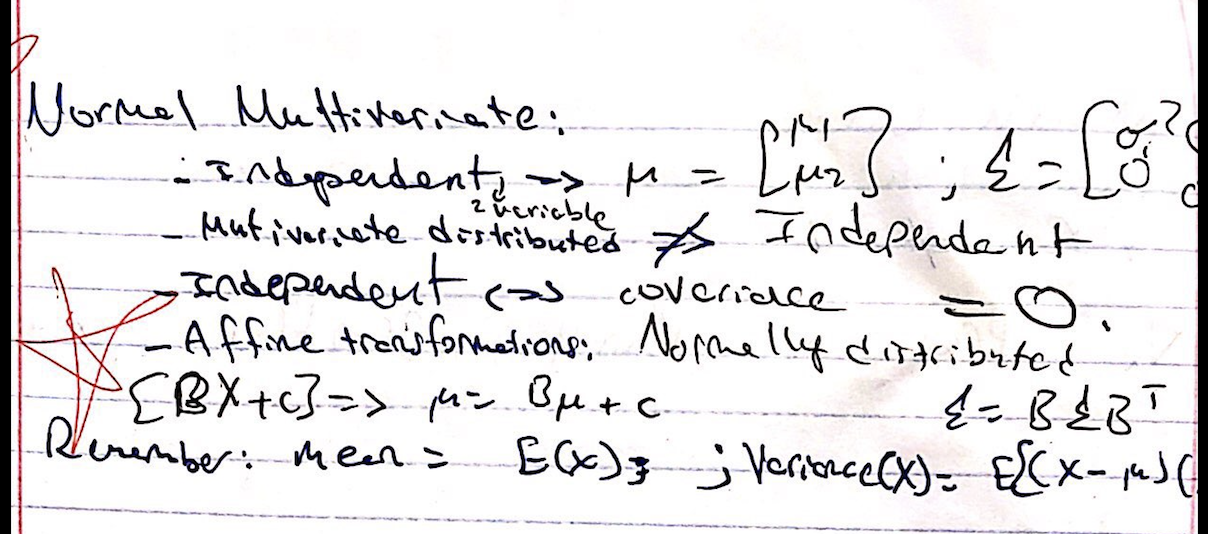 Normal Multivariate:
- Independent, → μ = [μ1 μ2] ; Σ = [σ1² 0
2 variable
- Mutivariate distributed ⇏ Independent
- Independent <=> covariance = 0.
- Affine transformations: Normally distributed
[BX+c] => μ = Bμ + c Σ = BΣBᵀ
Remember: mean = E(x) ; Variance(X) = E[(X-μ)(